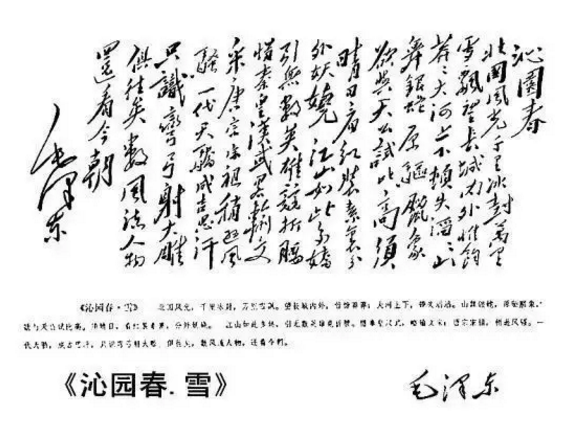 沁園春
北國風光千里冰封萬里
雪飄望長城内外惟餘
莽々大河上下頓失滔々山
舞銀蛇原驅臘象
欲與天公試比高須
晴日看红裝素裹分
外妖嬈江山如此多嬌
引無數英雄競折腰
惜秦皇漢武略輸文
采唐宗宋祖稍遜風
騷一代天驕成吉思汗
只識彎弓射大雕
俱往矣數風流人物
還看今朝
毛澤东
《沁园春·雪》 北国风光，千里冰封，万里雪飘。望长城内外，惟馀莽莽；大河上下，顿失滔滔。山舞银蛇，原驰蜡象，
欲与天公试比高。须晴日，看红装素裹，分外妖娆。 江山如此多娇，引无数英雄竞折腰。惜秦皇汉武，略输文采；唐宗宋祖，稍逊风骚。一
代天骄，成吉思汗，只识弯弓射大雕。俱往矣，数风流人物，还看今朝。
《沁园春.雪》
毛澤东